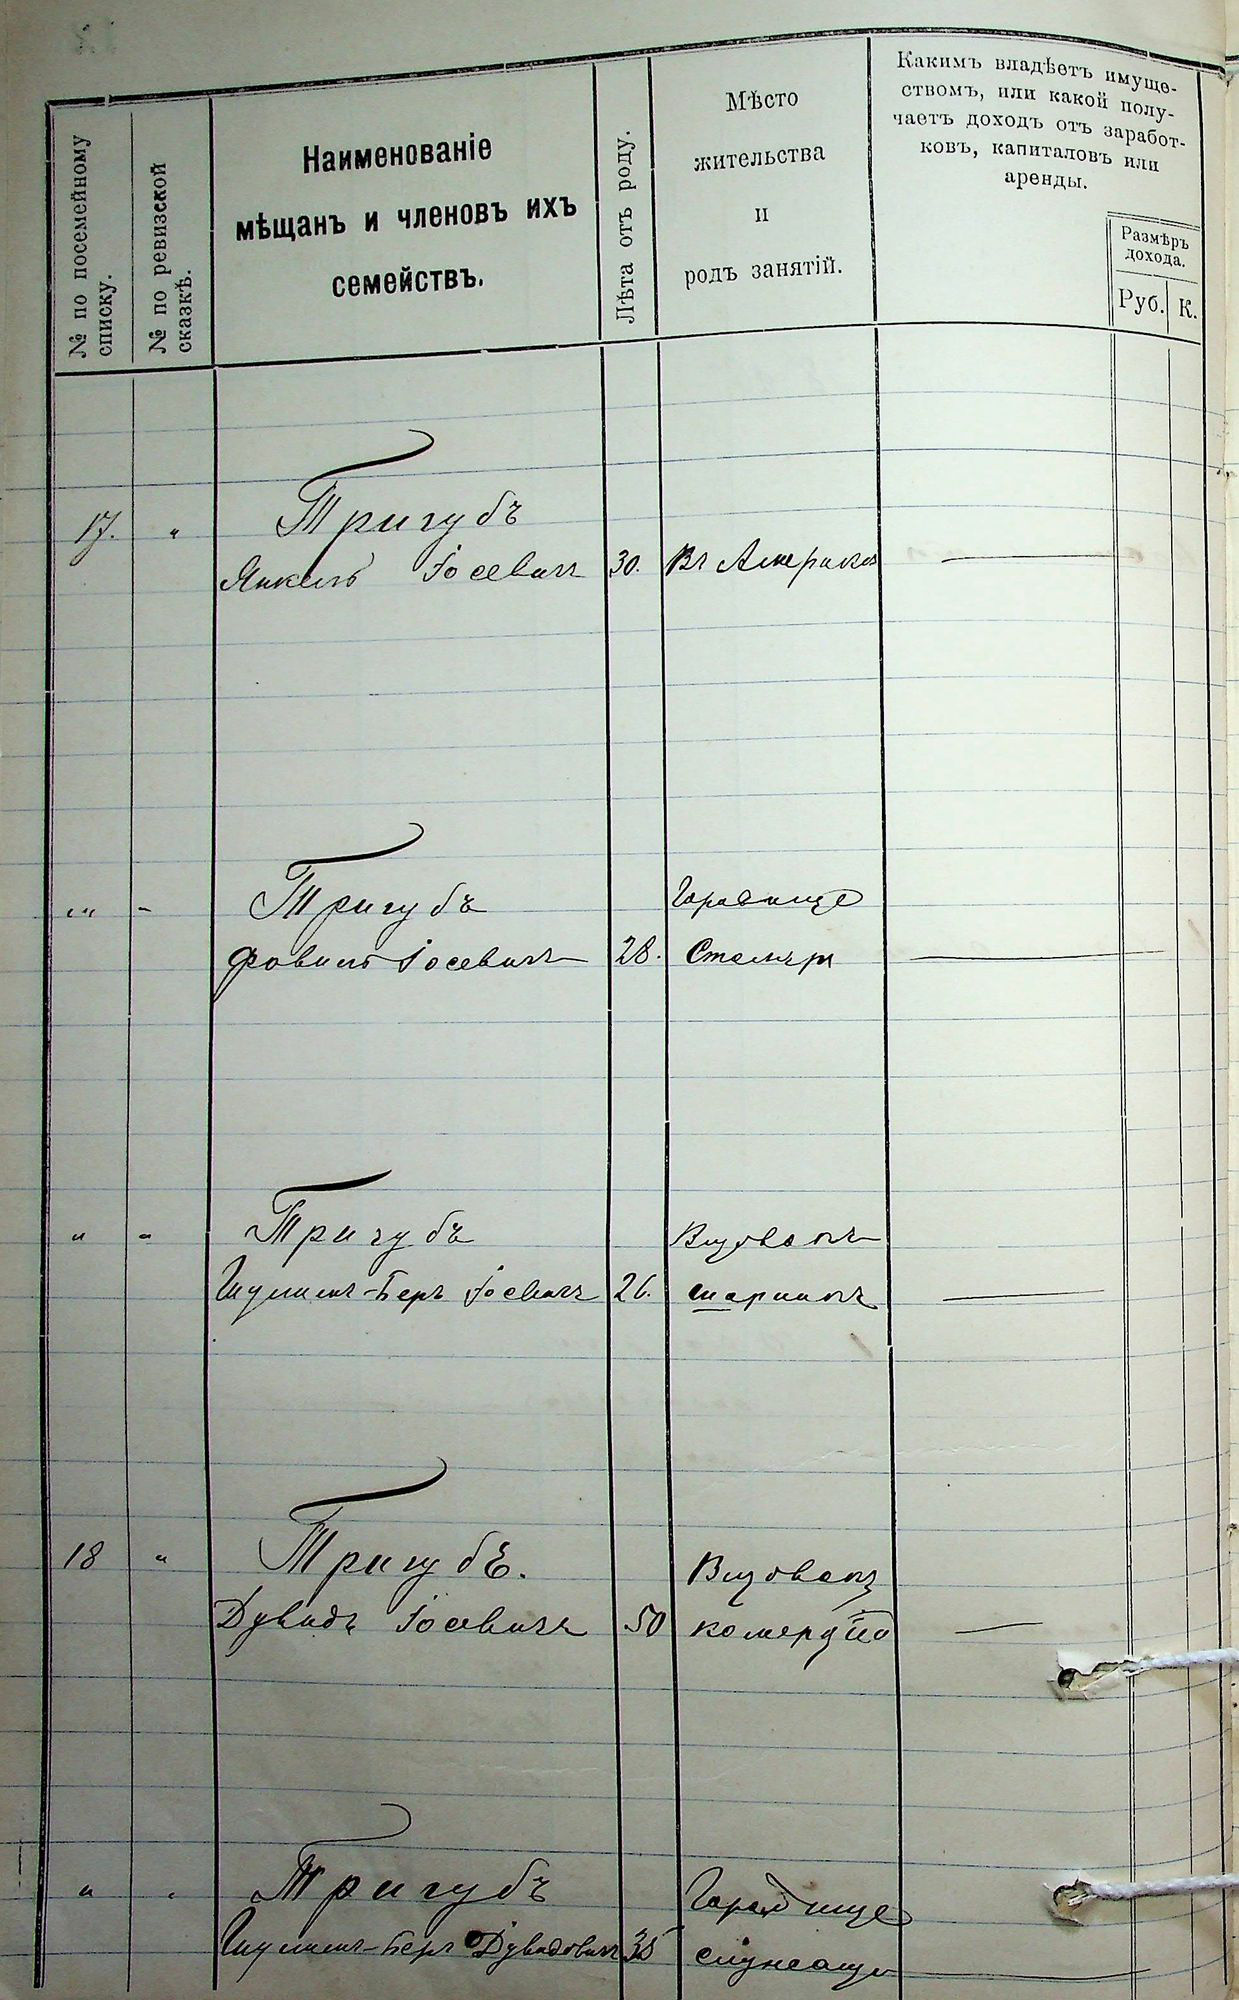 № по посемейному
списку.
№ по ревизской
сказкѣ.
Наименованіе
мѣщанъ и членовъ ихъ
семействъ.
Лѣта отъ роду.
Мѣсто
жительства
и
родъ занятій.
Какимъ владѣетъ имуще-
ствомъ, или какой полу-
чаетъ доходъ отъ заработ-
ковъ, капиталовъ или
аренды.
Размѣръ
дохода.
Руб. К.
17. " Тригубъ
Янкель Іосевичъ 30. Въ Америкѣ —
" " - Тригубъ Городище
Фовиль Іосевичъ 28. Столяръ —
" " Тригубъ
Шулимъ-Беръ Іосевичъ 26. —
18 " Тригубъ.
Дувидъ Іосевичъ 50 —
" " Тригубъ Городище
Шулимъ-Беръ Дувидовичъ 35 служащи —